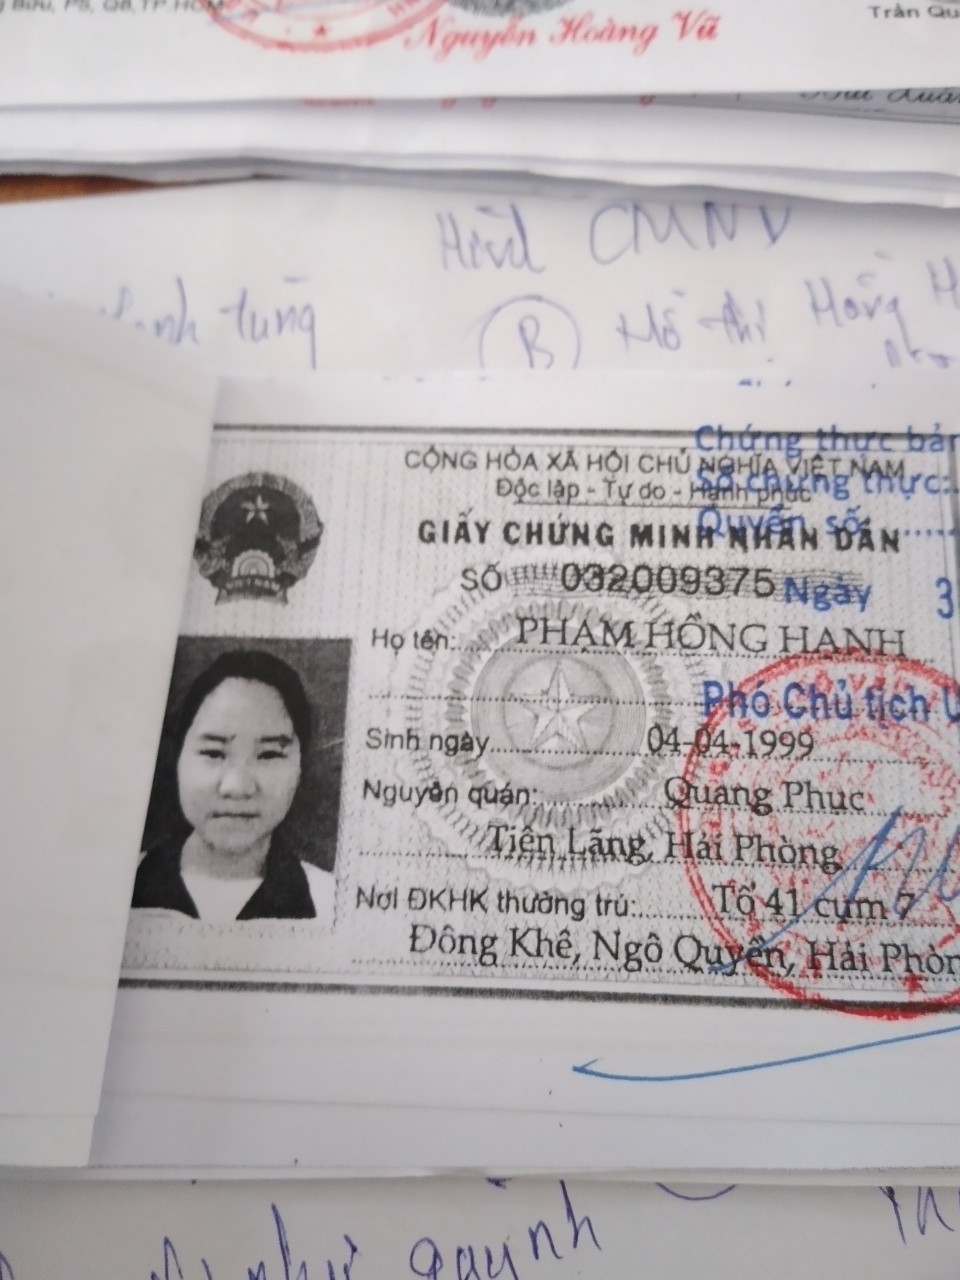 Bửu, P5, Q8, TP.HCM
Nguyễn Hoàng Vũ
Trần Qu
CMND
tùng
B
thị Hồng H
Chứng thực bản
CỘNG HÒA XÃ HỘI CHỦ NGHĨA VIỆT NAM
Số chứng thực:
Độc lập - Tự do - Hạnh phúc
Quyển số
GIẤY CHỨNG MINH NHÂN DÂN
SỐ 032009375
Ngày 3
Họ tên: PHẠM HỒNG HẠNH
Phó Chủ tịch U
Sinh ngày 04-04-1999
Nguyên quán: Quang Phục
Tiên Lãng, Hải Phòng
Nơi ĐKHK thường trú: Tổ 41 cụm 7
Đông Khê, Ngô Quyền, Hải Phòn
như quỳnh